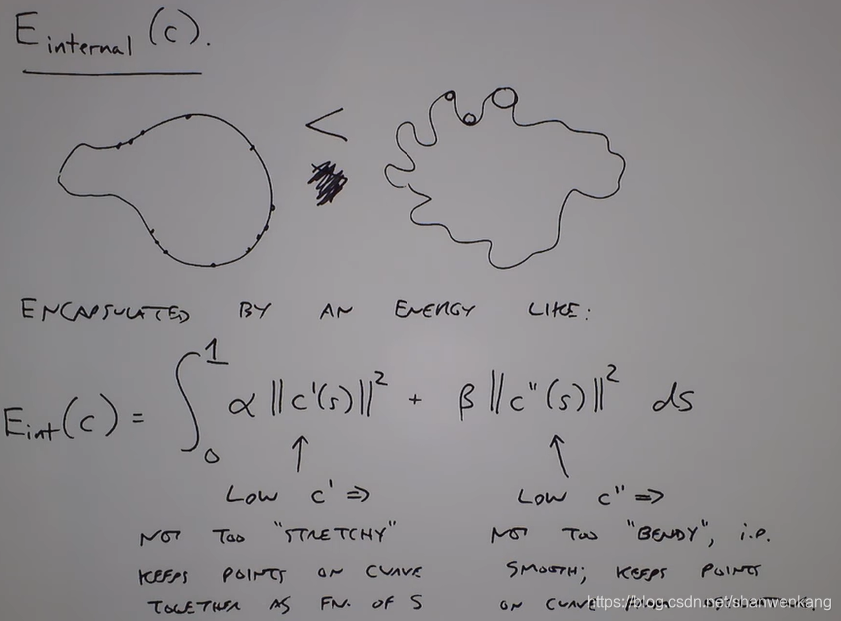 E internal (c).
<
ENCAPSULATED BY AN ENERGY LIKE:
E_int(c) = ∫₀¹ α ||c'(s)||² + β ||c"(s)||² ds
↑ ↑
LOW c' ⇒ LOW c" ⇒
NOT TOO "STRETCHY" NOT TOO "BENDY", i.e.
KEEPS POINTS ON CURVE SMOOTH; KEEPS POINTS
TOGETHER AS FN. OF S ON CURVE
https://blog.csdn.net/shanwenkang